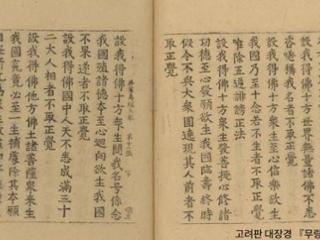 設我得佛十方世界無量諸佛不悉
咨嗟稱我名者不取正覺
設我得佛十方衆生至心信樂欲生
我國乃至十念若不生者不取正覺
唯除五逆誹謗正法
設我得佛十方衆生發菩提心修諸
功德至心發願欲生我國臨壽終時
假令不與大衆圍遶現其人前者不
取正覺
設我得佛十方衆生聞我名号係念
我國殖諸德本至心迴向欲生我國
不果遂者不取正覺
設我得佛國中人天不悉成滿三十
二大人相者不取正覺
設我得佛他方佛土諸菩薩衆來生
我國究竟必至一生補處除其本願
고려판 대장경 『무량